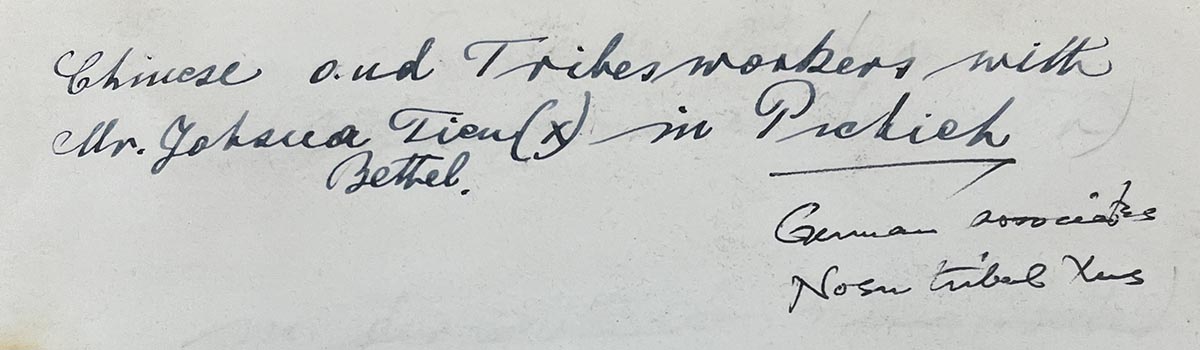 Chinese and Tribesworkers with
Mr. Johsua Tien (x) in Pichieh
Bethel.
German associates
Nosu tribal Xns